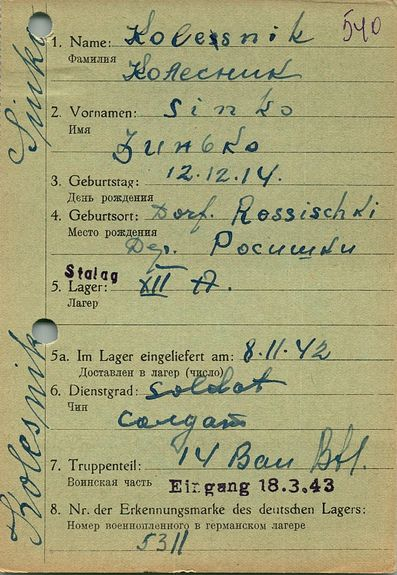 540
1. Name: Kolesnik
Фамилия Колесник
2. Vornamen: Sinko
Имя Зинько
3. Geburtstag: 12.12.14.
День рождения
4. Geburtsort: Dorf. Rossischki
Место рождения Дер. Росишки
Stalag
5. Lager: XII A.
Лагер
5a. Im Lager eingeliefert am: 8.11.42
Доставлен в лагер (число)
6. Dienstgrad: Soldat
Чин Солдат
7. Truppenteil: 14 Bau Btl.
Воинская часть Eingang 18.3.43
8. Nr. der Erkennungsmarke des deutschen Lagers:
Номер военнопленного в германском лагере
5311
Kolesnik Sinko